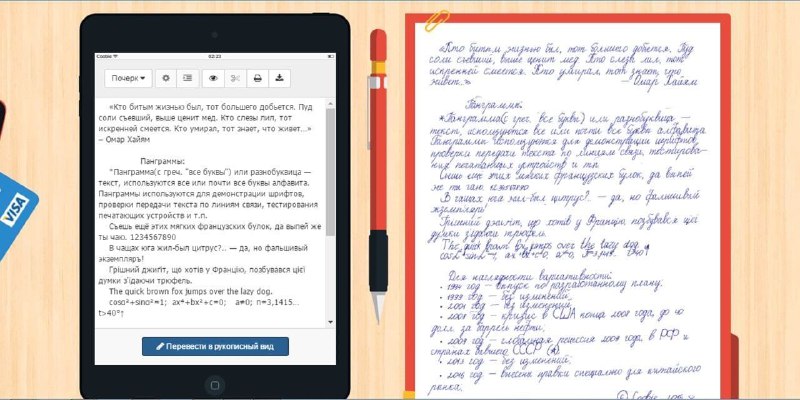 VISA
Cookie
02:23
Почерк
«Кто битым жизнью был, тот большего добьется. Пуд
соли съевший, выше ценит мед. Кто слезы лил, тот
искренней смеется. Кто умирал, тот знает, что живет...»
– Омар Хайям
Панграммы:
"Панграмма(с греч. "все буквы") или разнобуквица —
текст, используются все или почти все буквы алфавита.
Панграммы используются для демонстрации шрифтов,
проверки передачи текста по линиям связи, тестирования
печатающих устройств и т.п.
Съешь ещё этих мягких французских булок, да выпей же
ты чаю. 1234567890
В чащах юга жил-был цитрус?.. — да, но фальшивый
экземпляръ!
Грішний джиґіт, що хотів у Францію, позбувався цієї
думки з'їдаючи трюфель.
The quick brown fox jumps over the lazy dog.
cosα²+sinα²=1; ax²+bx²+c=0; a≠0; π=3,1415..
t>40°↑
Перевести в рукописный вид
«Кто битым жизнью был, тот большего добьется. Пуд
соли съевший, выше ценит мед. Кто слезы лил, тот
искренней смеется. Кто умирал, тот знает, что
живет...» – Омар Хайям
Панграммы:
"Панграмма(с греч. "все буквы") или разнобуквица —
текст, используются все или почти все буквы алфавита.
Панграммы используются для демонстрации шрифтов,
проверки передачи текста по линиям связи, тестирова-
ния печатающих устройств и т.п.
Съешь ещё этих мягких французских булок, да выпей
же ты чаю.
В чащах юга жил-был цитрус?.. — да, но фальшивый
экземпляръ!
Грішний джиґіт, що хотів у Францію позбувався цієї
думки з'їдаючи трюфель.
The quick brown fox jumps over the lazy dog.
Для наглядности вариативности:
• год — выпуск по разработанному плану.
• 1999 год — без изменений.
• 2001 год — без изменений.
• 2007 год — кризис в США конца 2007 года, до 40
долл за баррель нефти.
• 2009 год — глобальная рецессия 2009 года в РФ и
странах бывшего СССР
• 2013 год — без изменений.
• 2016 год — внесены правки специально для китайского
рынка.